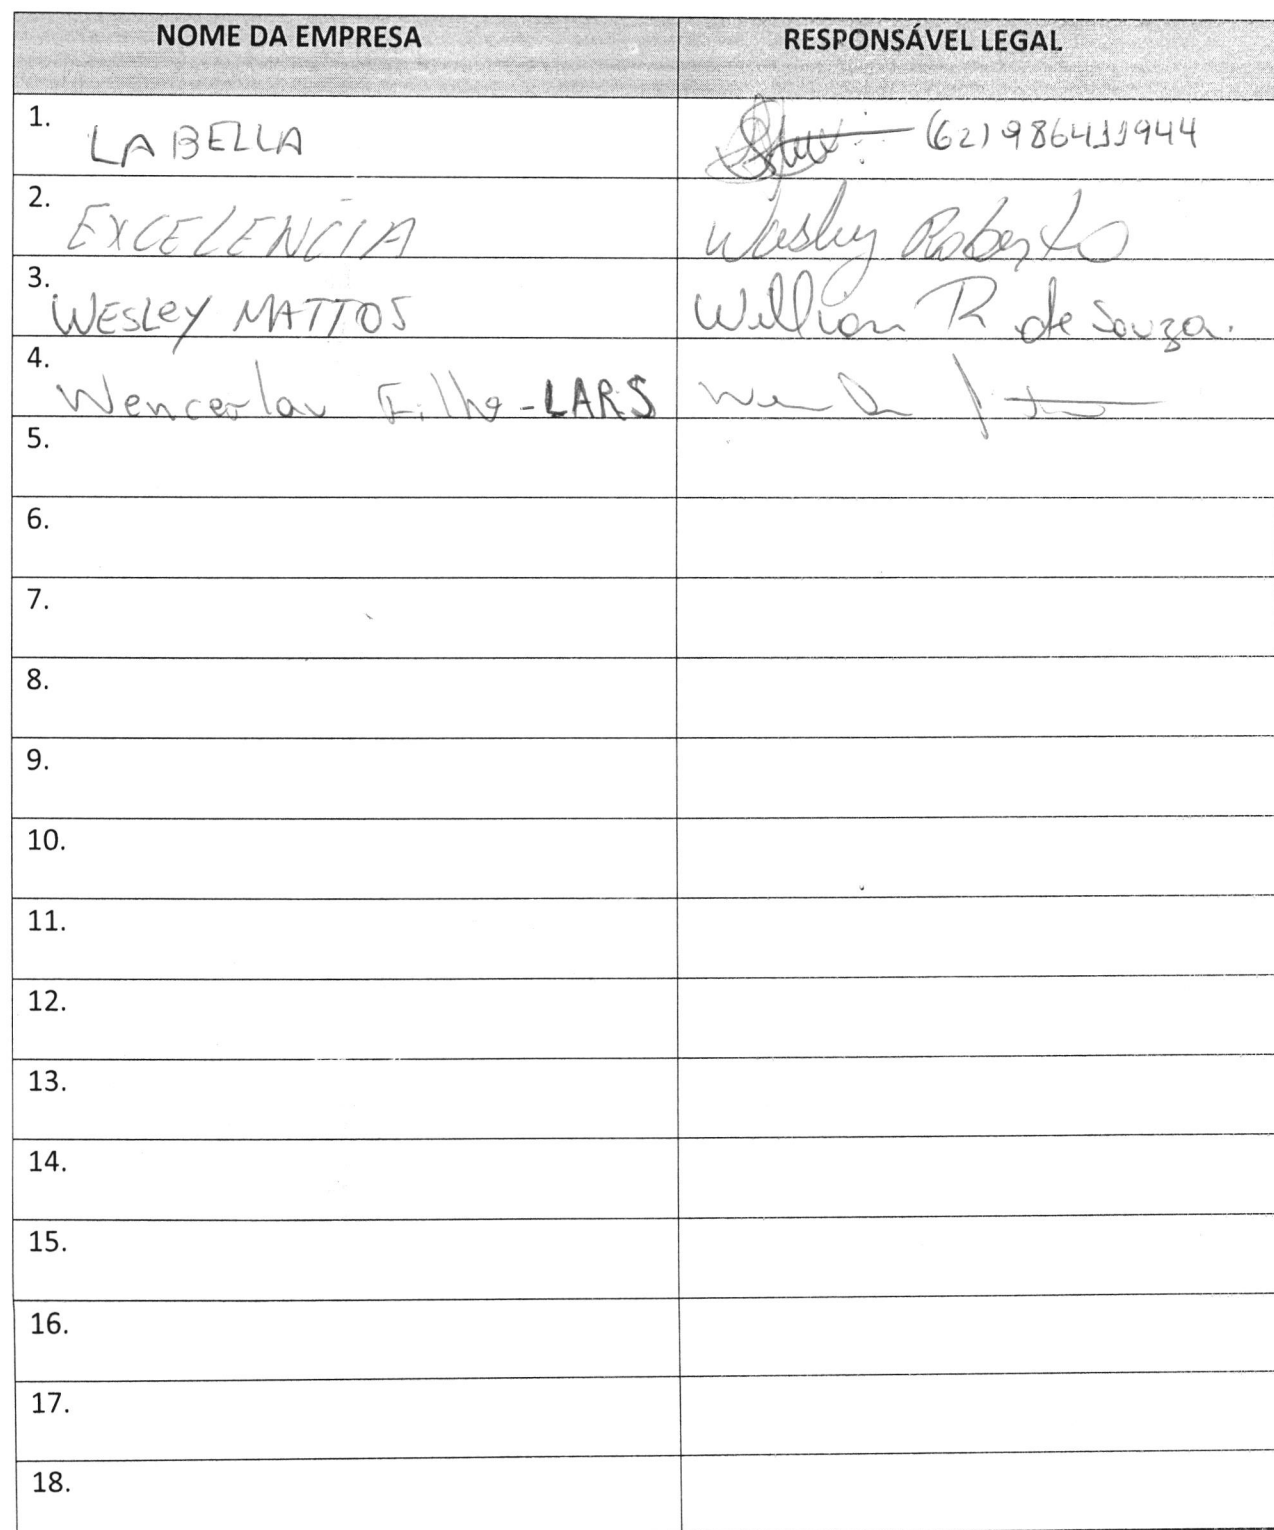 NOME DA EMPRESA RESPONSÁVEL LEGAL
1. LA BELLA (62) 986411944
2. EXCELENCIA Wesley Roberto
3. WESLEY MATTOS Willian R de Souza.
4. Wenceslau Filho - LARS
5.
6.
7.
8.
9.
10.
11.
12.
13.
14.
15.
16.
17.
18.